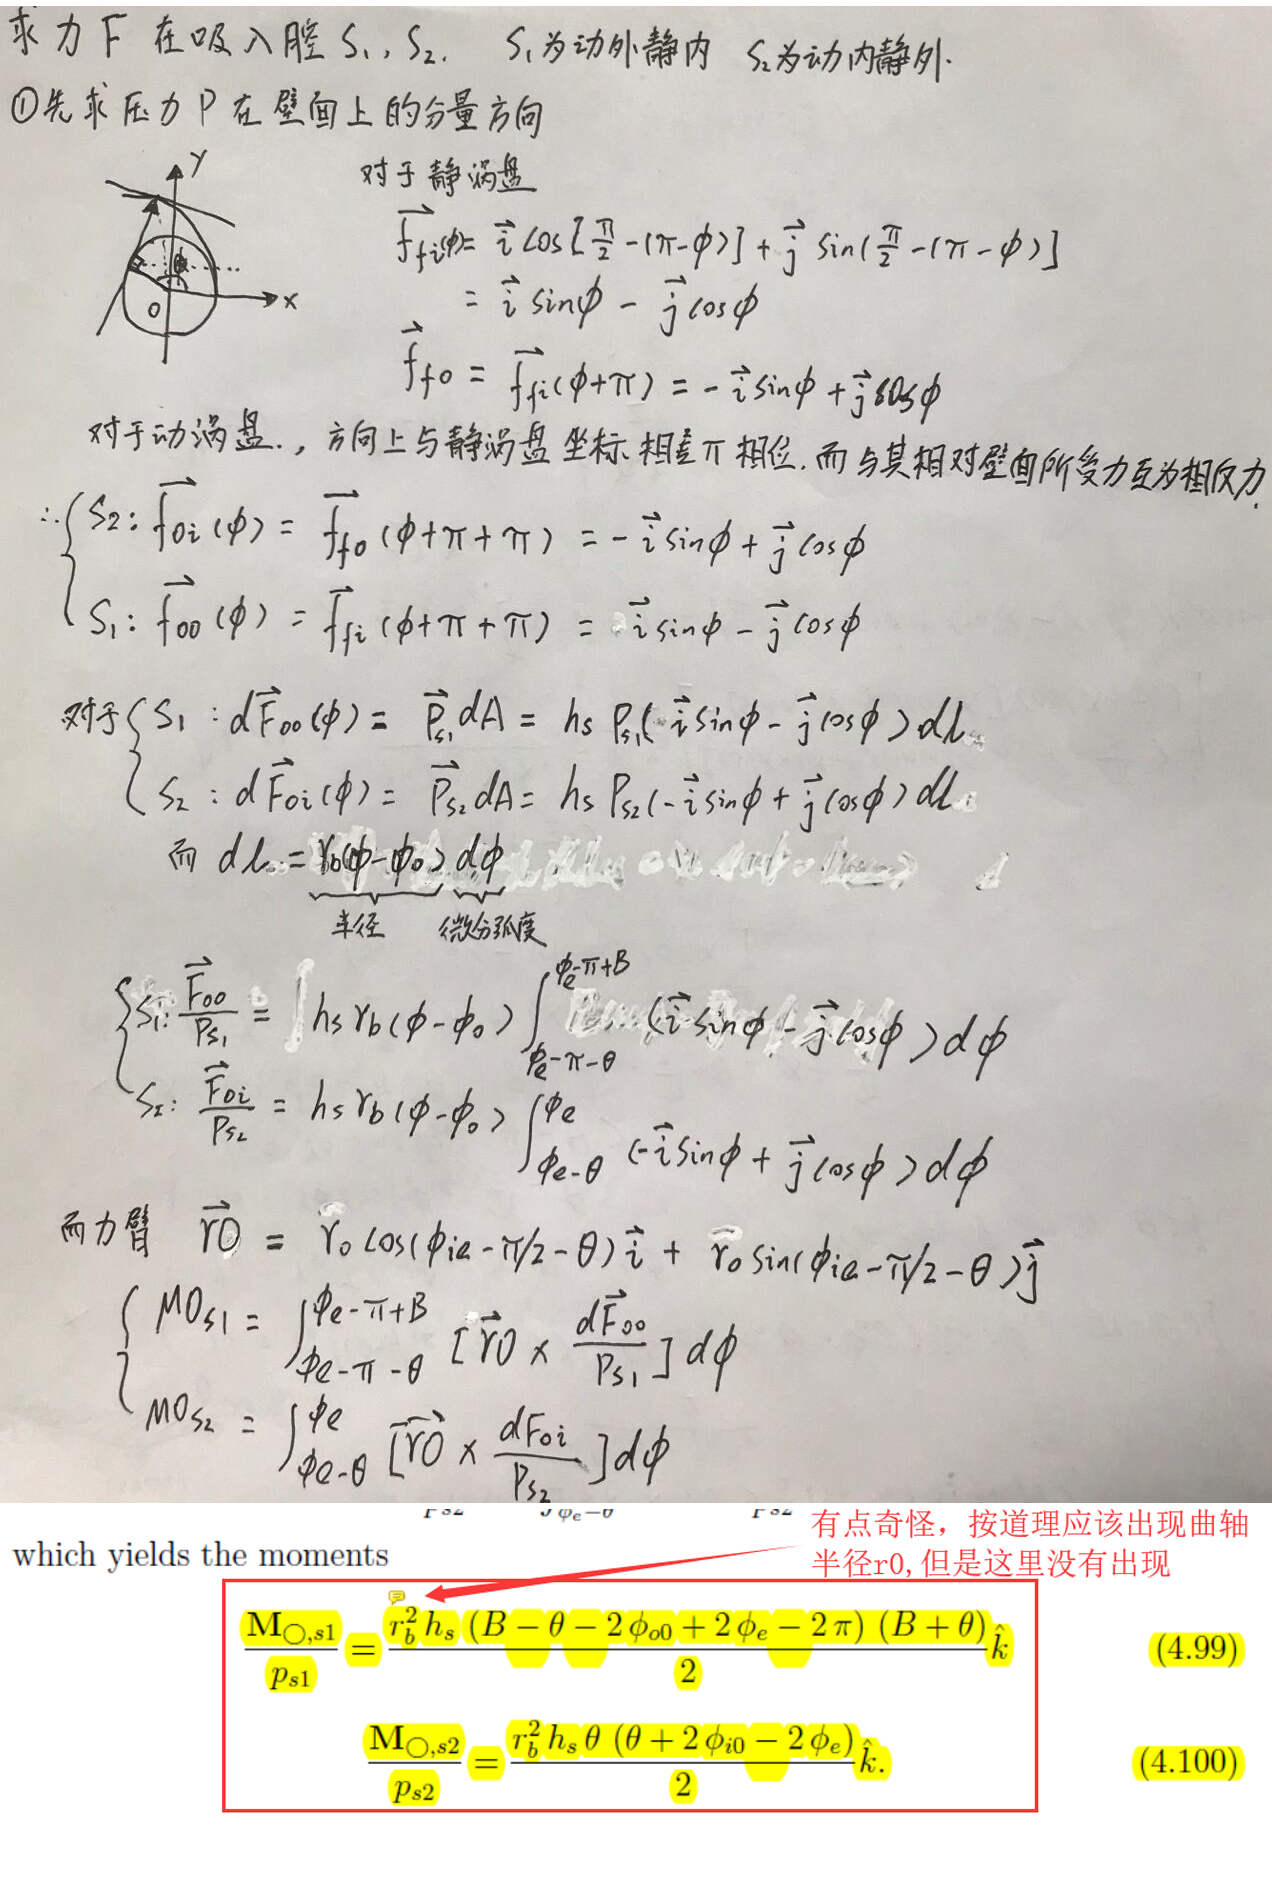 求力F在吸入腔S₁、S₂. S₁为动外静内 S₂为动内静外.
①先求压力P在壁面上的分量方向
y
x
O
ϕ
对于静涡盘
f⃗fi(ϕ)= i⃗ cos[π/2-(π-ϕ)] + j⃗ sin(π/2-(π-ϕ)]
= i⃗ sinϕ - j⃗ cosϕ
f⃗fo = f⃗fi(ϕ+π) = -i⃗ sinϕ + j⃗ cosϕ
对于动涡盘., 方向上与静涡盘坐标相差π相位.而与其相对壁面所受力互为相反力.
∴ S₂: f⃗oi(ϕ) = f⃗fo(ϕ+π+π) = -i⃗ sinϕ + j⃗ cosϕ
S₁: f⃗oo(ϕ) = f⃗fi(ϕ+π+π) = i⃗ sinϕ - j⃗ cosϕ
对于 S₁: dF⃗oo(ϕ) = P⃗s₁dA = hs Ps₁(i⃗ sinϕ - j⃗ cosϕ)dl
S₂: dF⃗oi(ϕ) = P⃗s₂dA = hs Ps₂(-i⃗ sinϕ + j⃗ cosϕ)dl
而 dl = rb(ϕ-ϕ₀) dϕ
半径 微分弧度
S₁: F⃗oo/Ps₁ = hs rb(ϕ-ϕ₀) ∫_{ϕe-π-θ}^{ϕe-π+B} (i⃗ sinϕ - j⃗ cosϕ)dϕ
S₂: F⃗oi/Ps₂ = hs rb(ϕ-ϕ₀) ∫_{ϕe-θ}^{ϕe} (-i⃗ sinϕ + j⃗ cosϕ)dϕ
而力臂 r⃗O = r₀ cos(ϕie-π/2-θ)i⃗ + r₀ sin(ϕie-π/2-θ)j⃗
MOs₁ = ∫_{ϕe-π-θ}^{ϕe-π+B} [r⃗O × dF⃗oo/Ps₁]dϕ
MOs₂ = ∫_{ϕe-θ}^{ϕe} [r⃗O × dFoi/Ps₂]dϕ
which yields the moments
有点奇怪，按道理应该出现曲轴
半径r0,但是这里没有出现
M○,s1/ps1 = rb² hs (B − θ − 2ϕo0 + 2ϕe − 2π) (B + θ)/2 k̂ (4.99)
M○,s2/ps2 = rb² hs θ (θ + 2ϕi0 − 2ϕe)/2 k̂. (4.100)